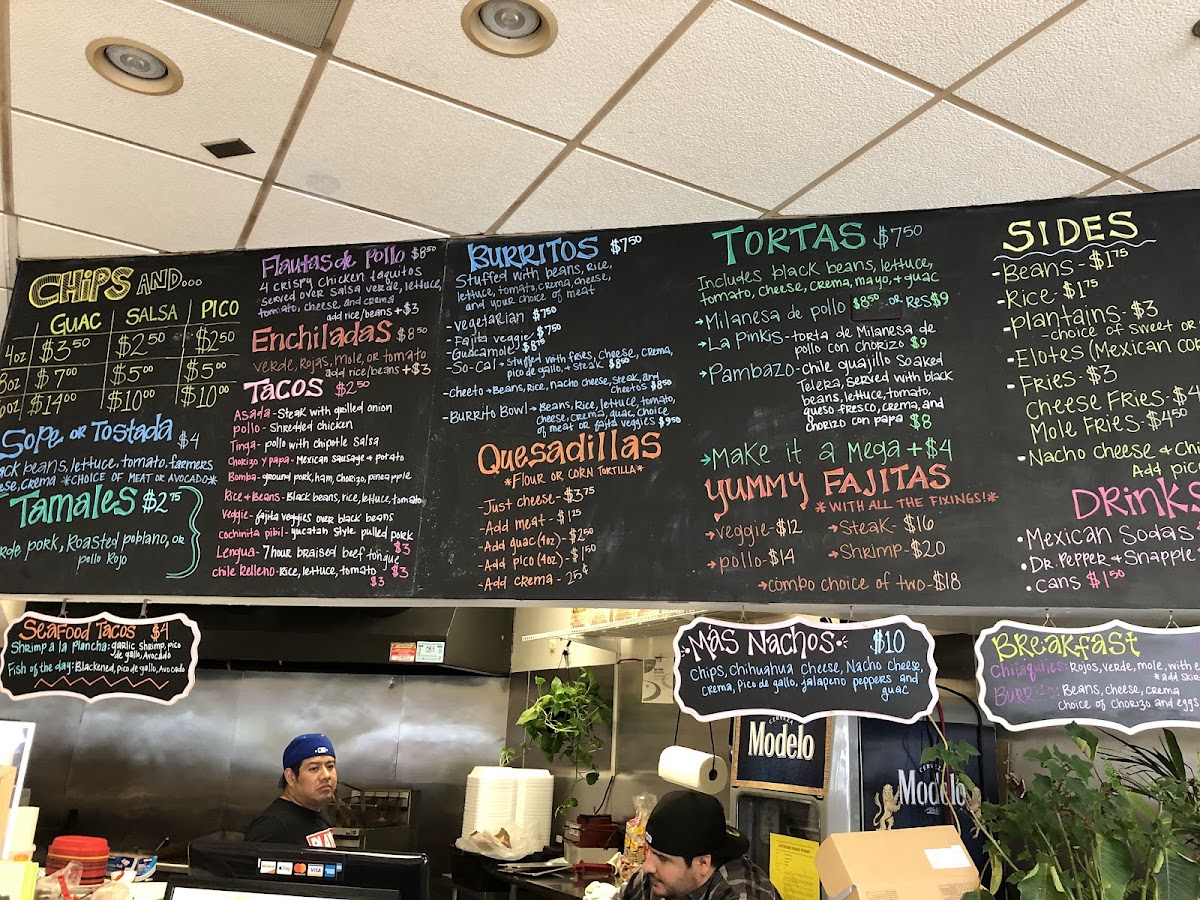 CHIPS AND...
GUAC SALSA PICO
4oz $3.50 $2.50 $2.50
8oz $7.00 $5.00 $5.00
$14.00 $10.00 $10.00
SOPE OR TOSTADA $4
beans, lettuce, tomato, farmers
crema *CHOICE OF MEAT OR AVOCADO*
Tamales $2.75
pork, Roasted poblano, or
pollo Rojo
Flautas de Pollo $8.50
4 crispy chicken taquitos
served over salsa verde, lettuce,
tomato, cheese, and crema
add rice/beans +$3
Enchiladas $8.50
verde, Rojas, mole, or tomato
add rice/beans +$3
TACOS $2.50
Asada - Steak with grilled onion
pollo - Shredded chicken
Tinga - pollo with chipotle salsa
Chorizo y papa - Mexican sausage & potato
Bomba - ground pork, ham, chorizo, pineapple
Rice & Beans - Black beans, rice, lettuce, tomato
Veggie - fajita veggies over black beans
Cochinita pibil - yucatan style pulled pork
Lengua - 7 hour braised beef tongue $3
chile relleno - rice, lettuce, tomato $3
$3
BURRITOS $7.50
Stuffed with beans, rice,
lettuce, tomato, crema, cheese,
and your choice of meat
- vegetarian $7.50
- Fajita veggie $7.50
- Guacamole $8.75
- So-cal → Stuffed with fries, cheese, crema,
pico de gallo, + steak $8.50
- cheeto → Beans, Rice, nacho cheese, steak, and
cheetos $8.50
- Burrito Bowl → Beans, Rice, lettuce, tomato,
cheese, crema, guac, choice
of meat or fajita veggies $9.50
Quesadillas
*FLOUR OR CORN TORTILLA*
- Just cheese - $3.75
- Add meat - $1.25
- Add guac (4oz) - $2.50
- Add pico (4oz) - $1.50
- Add crema - 25¢
TORTAS $7.50
Includes black beans, lettuce,
tomato, cheese, crema, mayo, + guac
→ Milanesa de pollo $8.50 or Res $9
→ La Pinkis - torta de Milanesa de
pollo con chorizo $9
→ Pambazo - chile guajillo soaked
Telera, served with black
beans, lettuce, tomato,
queso fresco, crema, and
chorizo con papa $8
→ Make it a Mega +$4
YUMMY FAJITAS
*WITH ALL THE FIXINGS!*
→ veggie - $12 → Steak - $16
→ pollo - $14 → Shrimp - $20
→ combo choice of two - $18
SIDES
- Beans - $1.75
- Rice - $1.75
- plantains - $3
- choice of sweet or
- Elotes (Mexican
- Fries - $3
Cheese Fries -
Mole Fries - $4.50
- Nacho cheese &
Add
DRINKS
• Mexican Sodas
• Dr. Pepper & Snapple
• cans $1.50
Seafood Tacos $4
Shrimp a la Plancha: garlic shrimp, pico
de gallo, Avocado
Fish of the day: Blackened, pico de gallo, Avocado
Más Nachos $10
Chips, chihuahua cheese, Nacho cheese,
crema, Pico de gallo, jalapeno peppers and
guac
Breakfast
Chilaquiles: Rojos, verde, mole, with
* add
Burrito: Beans, cheese, crema
choice of chorizo and eggs
CERVEZA
Modelo
CERVEZA
Modelo
Pay
VISA